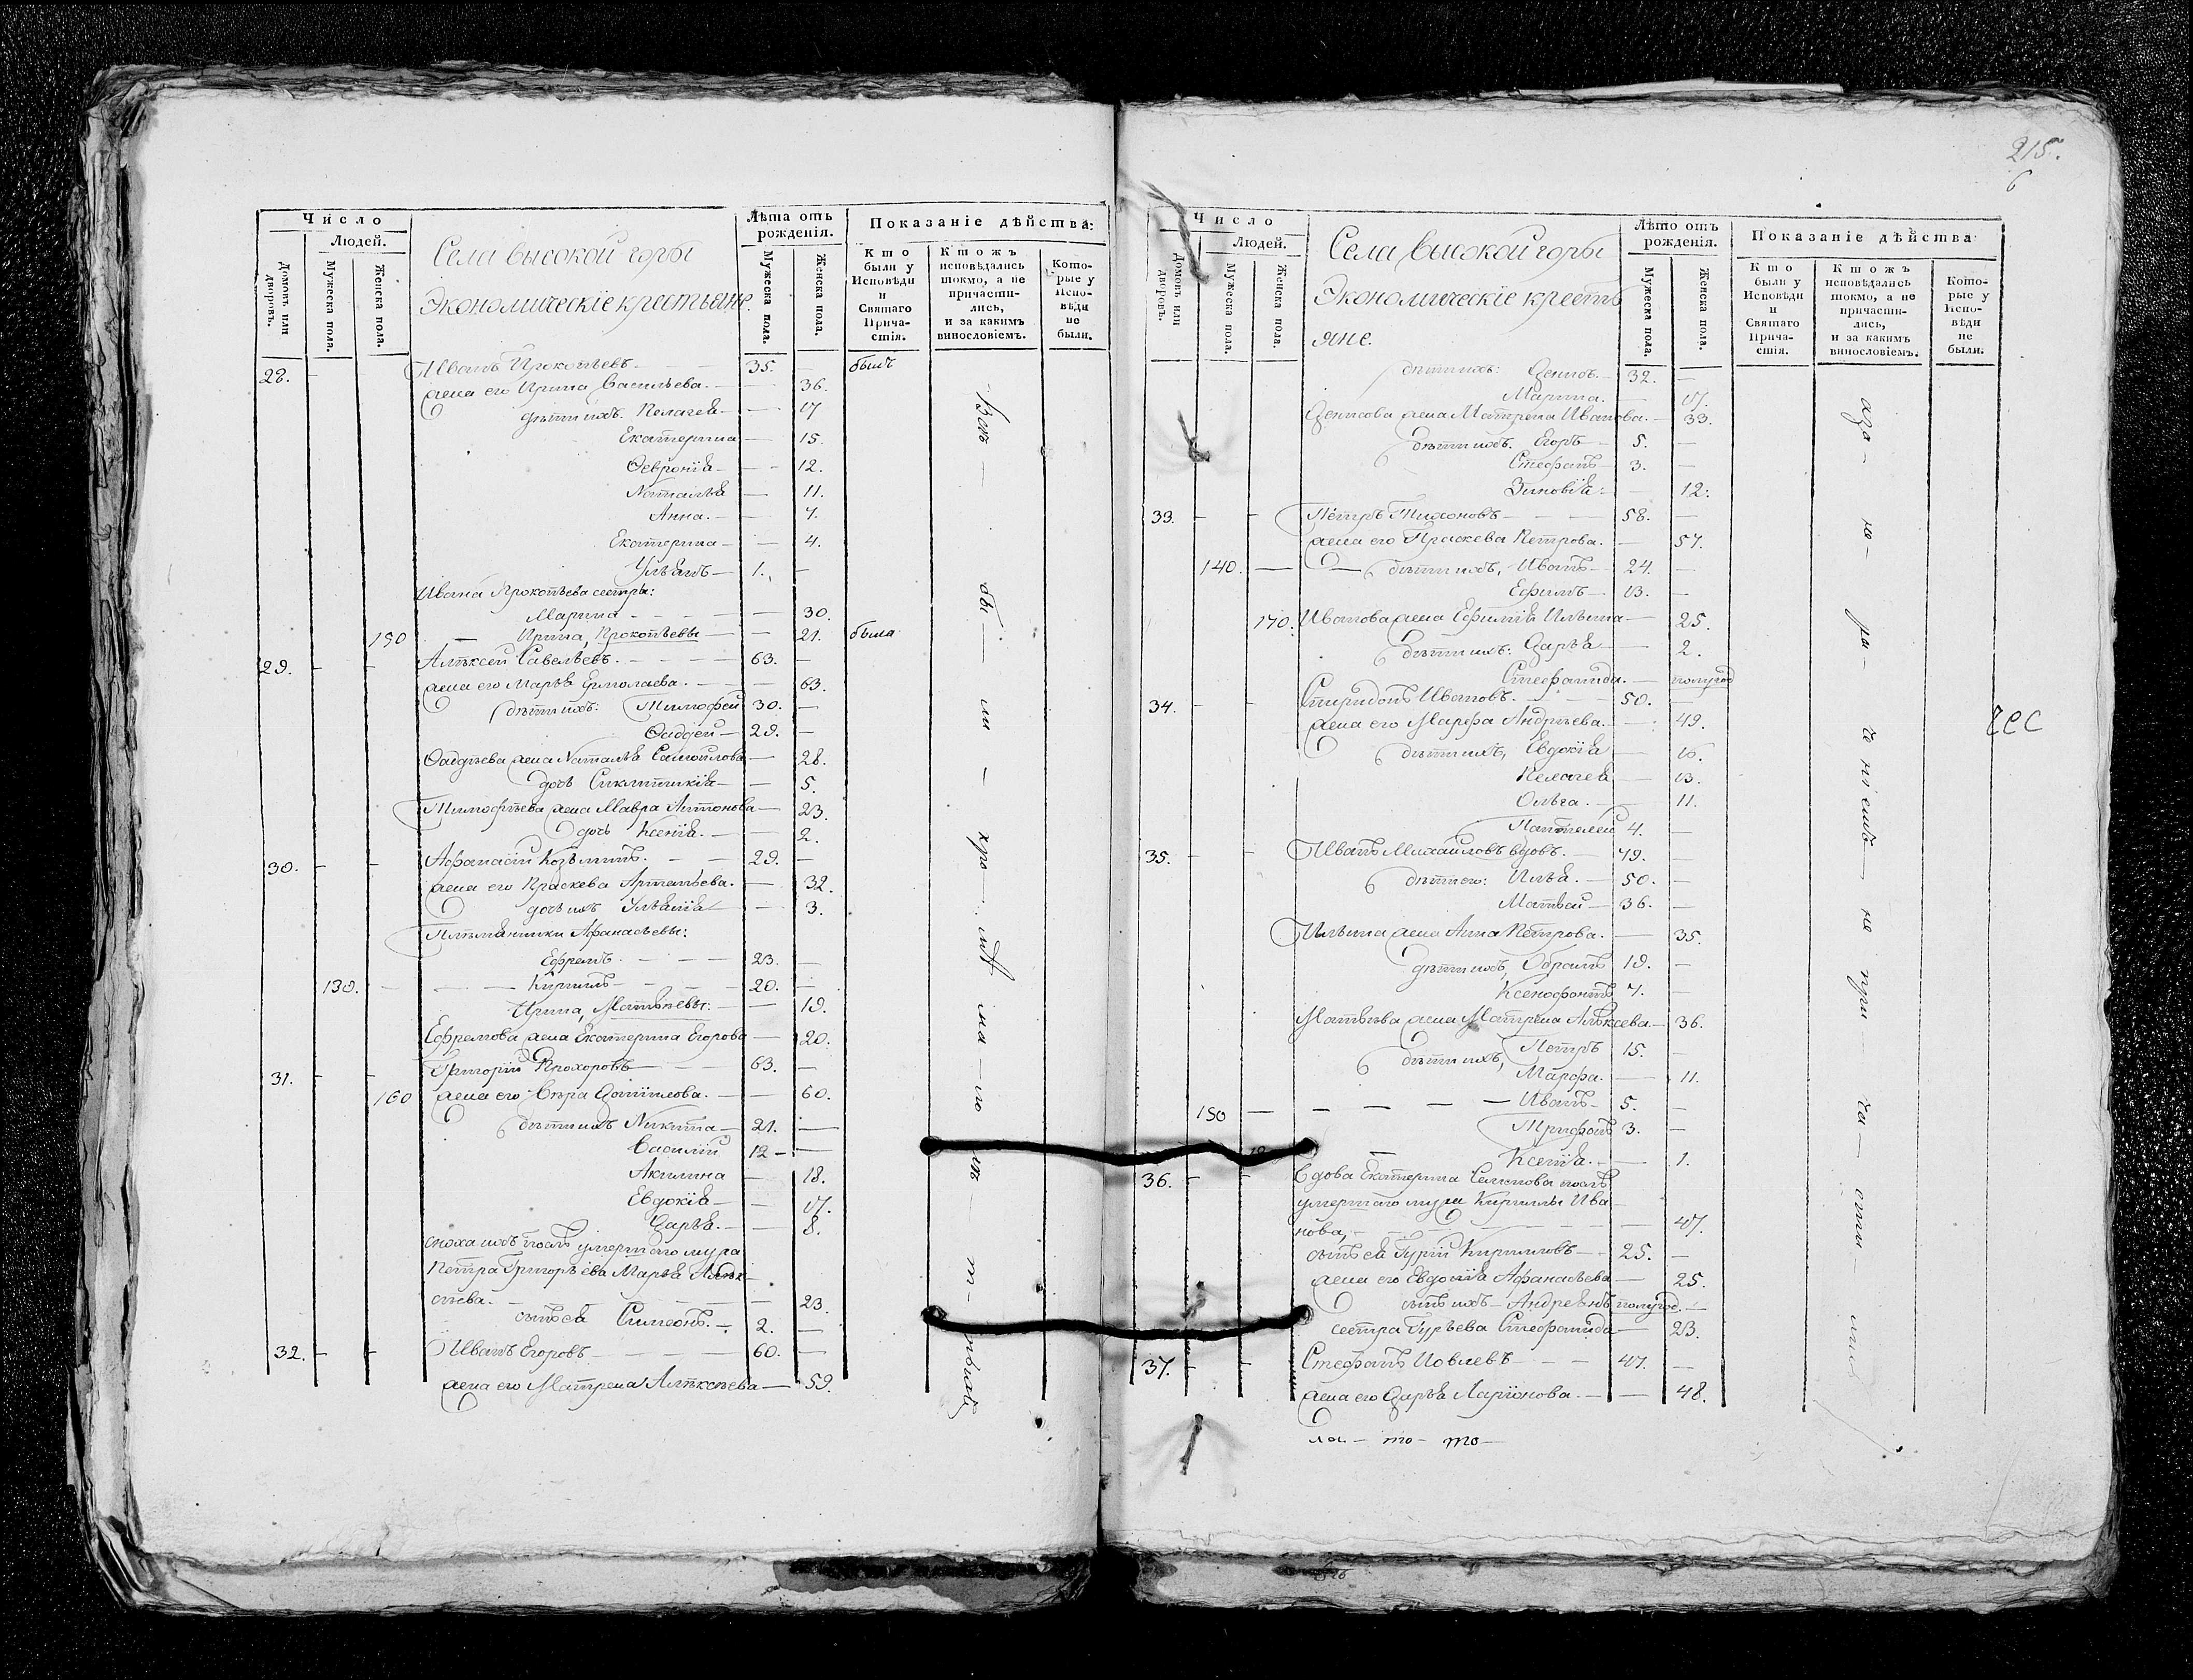 Число
Людей.
Домовъ или дворовъ.
Мужеска пола.
Женска пола.
Села высокой горы
Экономическіе крестьяне.
Лѣта отъ рожденія.
Мужеска пола.
Женска пола.
Показаніе дѣйства:
Кто были у Исповѣди и Святаго Причастія.
Ктожъ исповѣдались токмо, а не причастились, и за какимъ винословіемъ.
Которые у Исповѣди не были.
28. Иванъ Прокопьевъ 35. былъ
жена его Ирина Васильева 36.
дѣти ихъ. Пелагея 17
Екатерина 15.
Ѳевронія 12.
Наталья 11.
Анна. 7.
Екатерина 4.
Ульянъ 1.
Ивана Прокопьева сестры:
Марина 30.
150 Ирина, Прокопьевы 21. была
29. Алексѣй Савельевъ. 63.
жена его Марья Ермолаева. 63.
дѣти ихъ: Тимофей 30.
Ѳаддей 29.
Ѳаддѣева жена Наталья Самойлова 28.
дочь Сикликтикія 5.
Тимофѣева жена Мавра Антонова 23.
дочь Ксенія. 2.
30. Афанасій Козьминъ. 29.
жена его Праскева Артемьева. 32.
дочь ихъ Ульянія 3.
Племянники Афанасьевы:
Ефремъ 23.
130. Кирилъ 20.
Ирина, Матвѣевы: 19.
Ефремова жена Екатерина Егорова 20.
31. Григорій Прохоровъ 63.
160 жена его Вѣра Данилова. 60.
дѣти ихъ Никита 21.
Василій 12
Акилина 18.
Евдокія 17.
Дарья. 8.
сноха ихъ послѣ умершаго мужа
Петра Григорьева Марья Алек-
сѣева. 23.
сынъ ея Симеонъ. 2.
32. Иванъ Егоровъ 60.
жена его Матрена Алексѣева 59.
215.
6
Число
Людей.
Домовъ или дворовъ.
Мужеска пола.
Женска пола.
Села высокой горы
Экономическіе кресть
яне.
Лѣто отъ рожденія.
Мужеска пола.
Женска пола.
Показаніе дѣйства
Кто были у Исповѣди и Святаго Причастія.
Ктожъ исповѣдались токмо, а не причастились, и за какимъ винословіемъ.
Которые у Исповѣди не были.
дѣти ихъ: Денисъ. 32.
Марина. 17.
Денисова жена Матрена Иванова. 33.
дѣти ихъ. Егоръ 5.
Стефанъ 3.
Зиновія: 12.
33. Петръ Тихоновъ 58.
жена его Праскева Петрова. 57.
140. дѣти ихъ, Иванъ 24.
Ефимъ 13.
170. Иванова жена Ефимія Ильина 25.
дѣти ихъ: Дарья 2.
Стефанида. полугод
34. Спиридонъ Ивановъ. 50.
жена его Марфа Андрѣева. 49.
дѣти ихъ, Евдокія 16.
Пелагея 13.
Ольга. 11.
Пантелей 4.
35. Иванъ Михайловъ вдовъ. 79.
дѣти его: Илья. 50.
Матвей 36.
Ильина жена Анна Петрова. 35.
дѣти ихъ, Обрамъ 19.
Ксенофонтъ 7.
Матвѣева жена Матрена Алексеева 36.
дѣти ихъ, Петръ 15.
Марфа. 11.
150 Иванъ 5.
Трифонъ 3.
Ксенія. 1.
36. Вдова Екатерина Семенова послѣ
умершаго мужа Кирилы Ива
нова, 47.
сынъ ея Гурій Кириловъ 25.
жена его Евдокія Афанасьева 25.
сынъ ихъ Андреянъ полугод.
сестра Гурьева Стефанида 23.
37. Стефанъ Иовлевъ 47.
жена его Дарья Ларіонова. 48.
ла – то – то